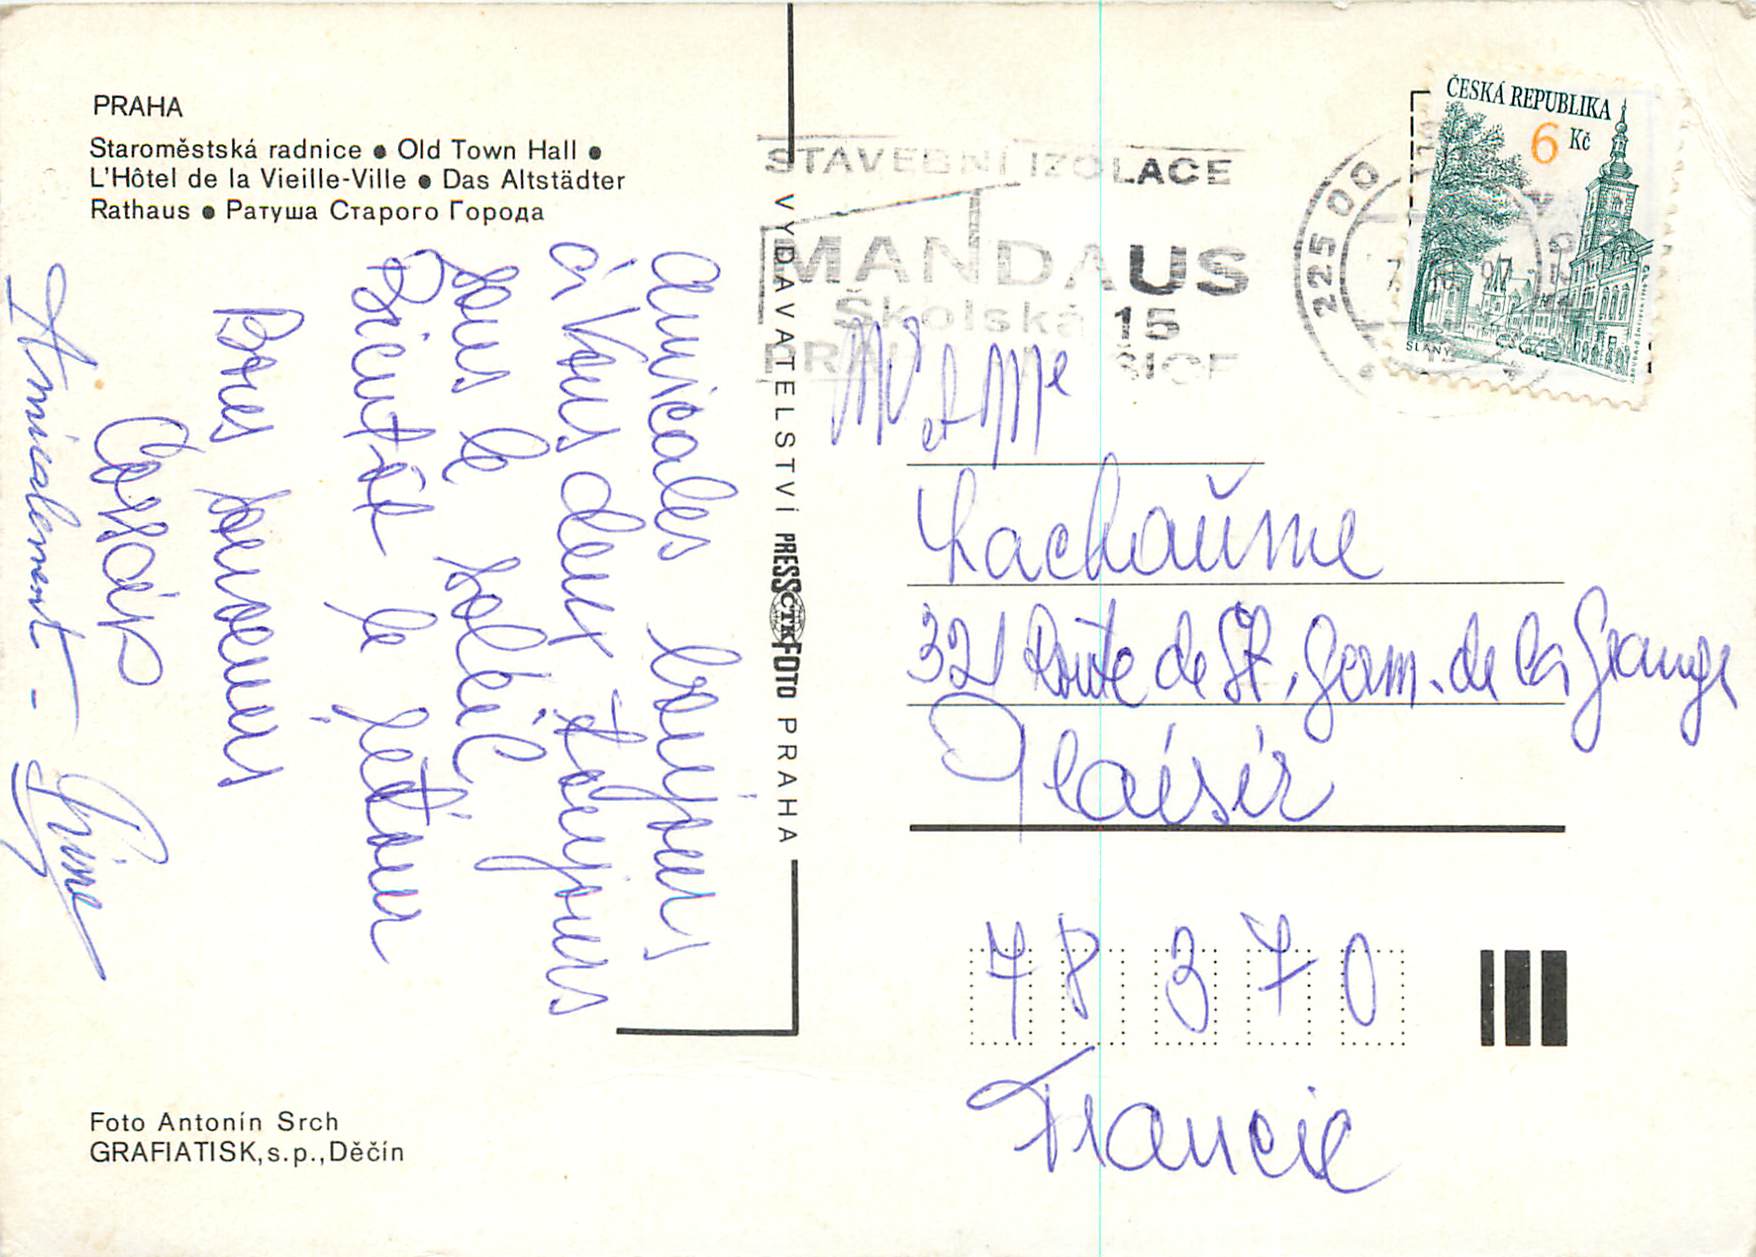 PRAHA
Staroměstská radnice ● Old Town Hall ●
L'Hôtel de la Vieille-Ville ● Das Altstädter
Rathaus ● Ратуша Старого Города
Amicales bonjours
à Vous deux toujours
sous le soleil
Bientôt le retour
Bones
Amicalement -
VYDAVATELSTVÍ PRESSFOTO PRAHA
ČTK
STAVEBNÍ IZOLACE
MANDAUS
Školská 15
225 00
ČESKÁ REPUBLIKA
6 Kč
SLANÝ
Mr et Mme
Lachaŭme
321 Route de St. Germ. de la Grange
Plaisir
78370
Francie
Foto Antonín Srch
GRAFIATISK, s.p., Děčín